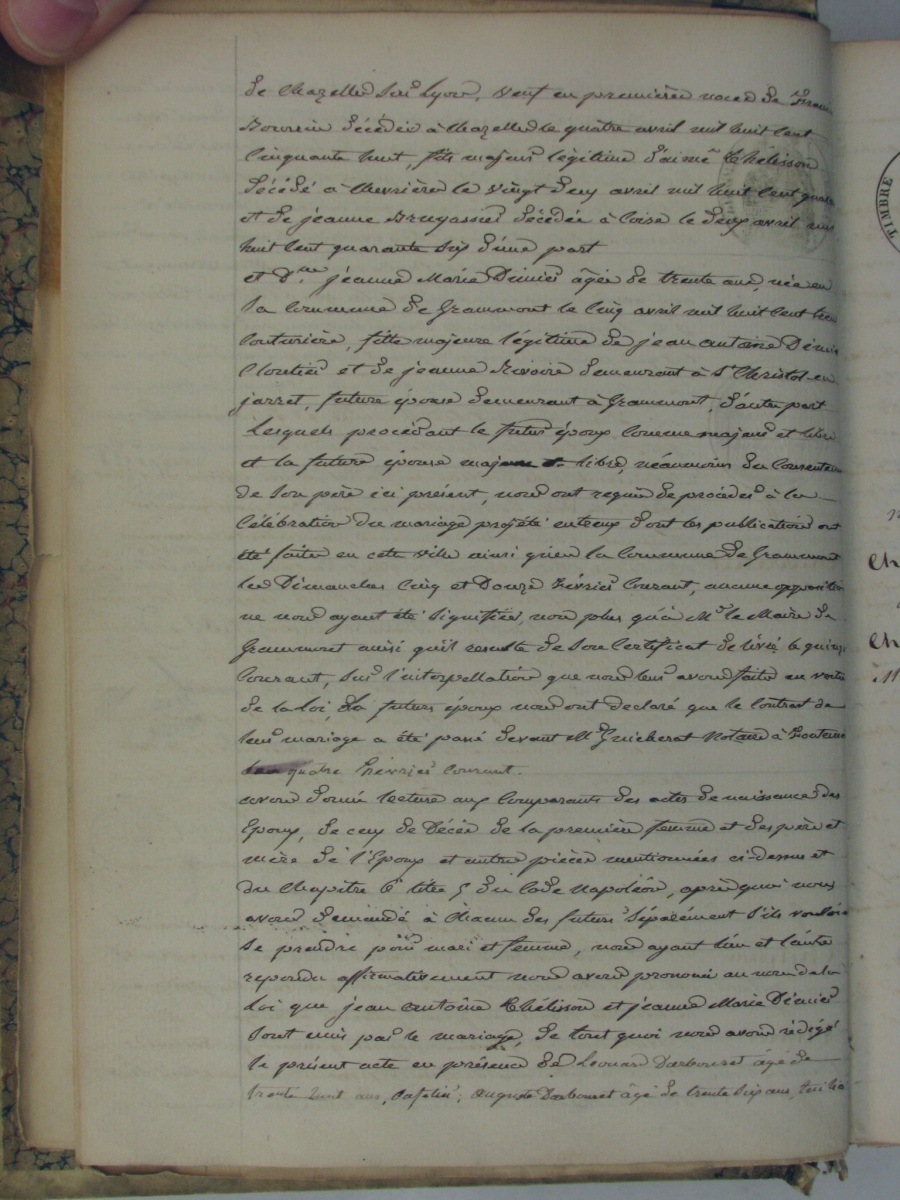 de Chazelles sur Lyon, veuf en premières noces de
décédée à Chazelles le quatre avril mil huit cent
cinquante huit, fils majeur légitime d'aimé Thélisson
décédé à Chevrières le vingt deux avril mil huit cent
et de jeanne Bruyassier décédée à Coise le deux avril mil
huit cent quarante six d'une part
et Dlle jeanne Marie Dimier âgée de trente ans, née en
la commune de Grammont le cinq avril mil huit cent
couturière, fille majeure légitime de jean antoine Dimier
Cloutier et de jeanne Rivoire demeurant à St Christol en
jarret, future épouse demeurant à Grammont, d'autre part
Lesquels procédant le futur époux comme majeur et libre
et la future épouse majeure et libre, néanmoins du consentement
de son père ici présent, nous ont requis de procéder à la
célébration du mariage projété enteux dont les publications ont
été faites en cette ville ainsi qu'en la commune de Grammont
les Dimanches cinq et Douze février courant, aucune opposition
ne nous ayant été signifiée, non plus qu'à Mr le Maire de
Grammont ainsi qu'il resulte de son certificat delivré le quinze
courant, sur l'interpellation que nous leur avons faite en vertu
de la loi, Les futurs époux nous ont declaré que le contrat de
leur mariage a été passé devant Me Guicherat Notaire à
quatre février courant.
avons donné lecture aux comparants des actes de naissance des
Epoux, de ceux de Décès de la première femme et des père et
mère de l'Epoux et autres pièces mentionnées ci-dessus et
du Chapitre 6 titre 5 du Code Napoléon, après quoi nous
avons demandé à Chacun des futurs séparément s'ils voulaient
se prendre pour mari et femme, nous ayant l'un et l'autre
repondu affirmativement nous avons prononcé au nom de la
Loi que jean antoine Thélisson et jeanne Marie Dimier
sont unis par le mariage, de tout quoi nous avons rédigé
le présent acte en présence de Léonard Darbouret âgé de
trente huit ans, Cafetier; Auguste Darbouret âgé de trente six ans,
TIMBRE